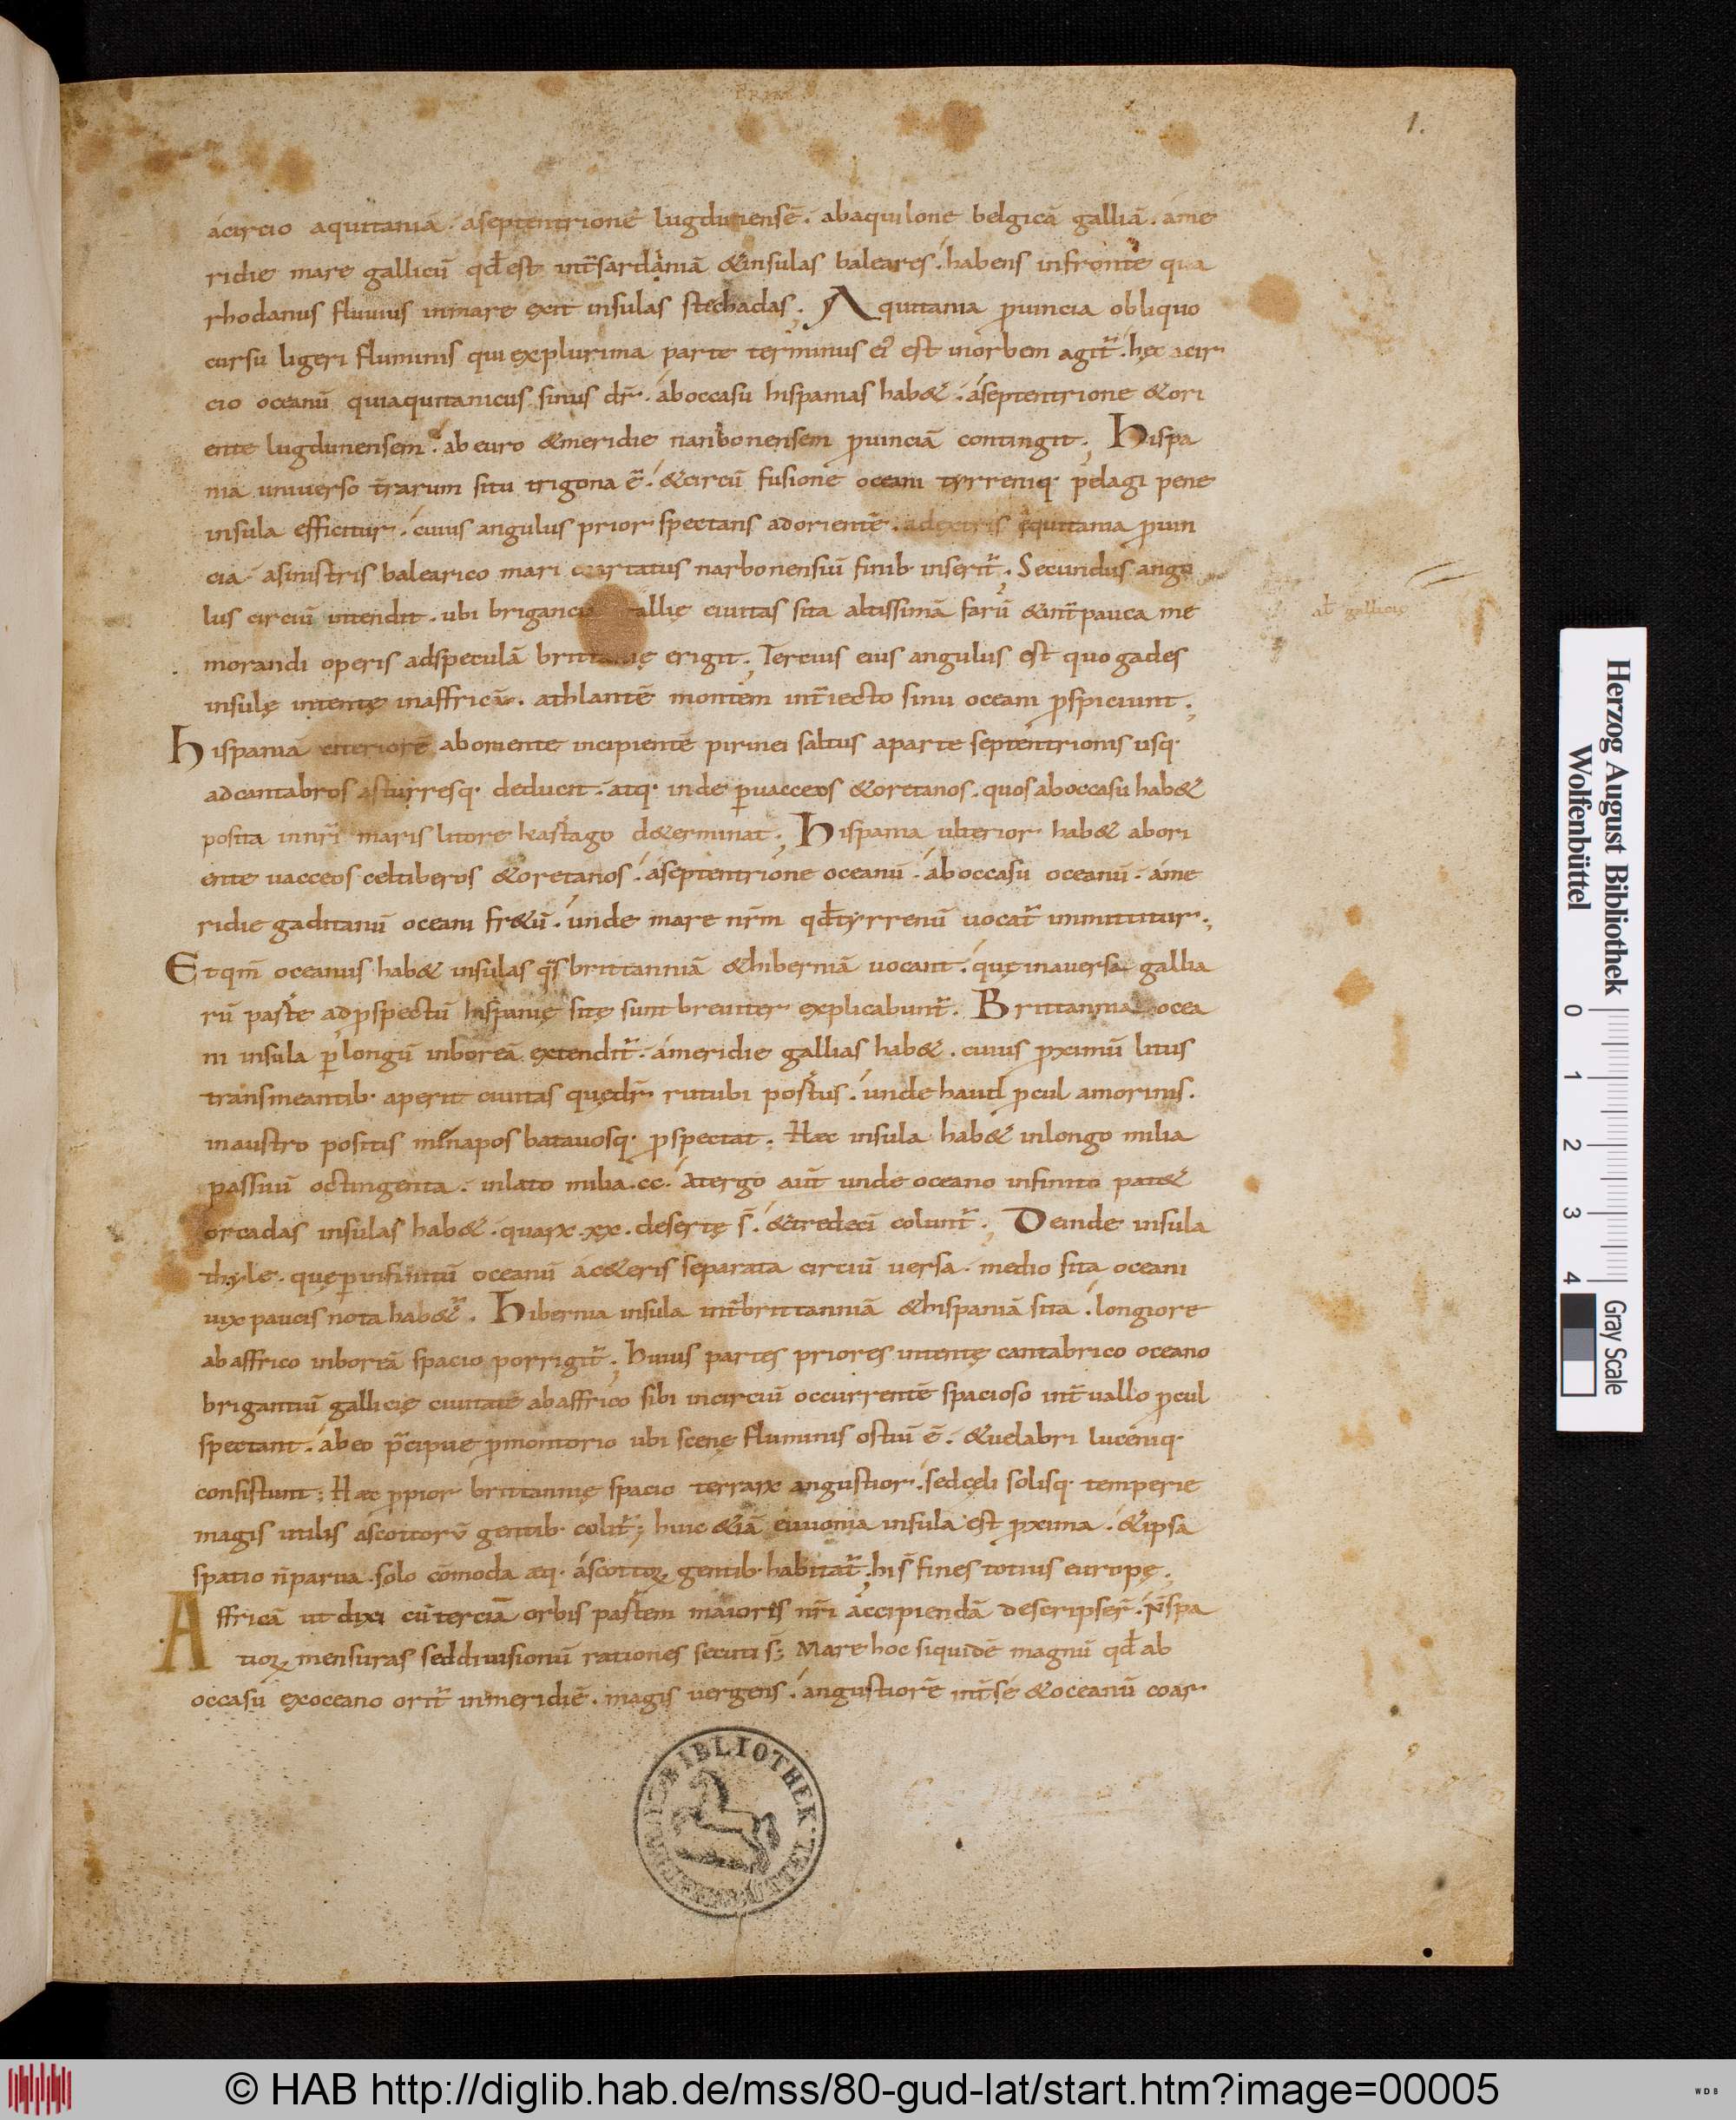 1.
acircio aquitaniā. aseptentrione lugdunensē. abaquilone belgicā galliā. ame
ridie mare gallicū qđ est int̄ sardaniā &insulas baleares. habens infronte qua
rhodanus fluuius inmare exit insulas stechadas; Aquitania ꝓuincia obliquo
cursu ligeri fluminis qui explurima parte terminus ei᾽ est inorbem agit᷑. hęc acir
cio oceanū quiaquitanicus sinus dr̄. aboccasu hispanias hab&. aseptentrione &ori
ente lugdunensem. ab euro &meridie narbonensem ꝓuinciā contingit; Hispa
nia uniuerso t̄rarum situ trigona ē. &circū fusione oceani tyrreniq· pelagi pene
insula efficitur. cuius angulus prior spectans adorientē. adextris equitania ꝓuin
cia asinistris balearico mari coartatus narbonensiū finib· inserit᷑; Secundus angu
lus circiū intendit. ubi brigancia gallię ciuitas sita altissimā farū &int̄ pauca me
morandi operis adspeculā brittanię erigit; Tercius eius angulus est quo gades
insulę intentę inaffricā. athlantē montem int̄iecto sinu oceani ꝓspiciunt;
Hispaniā citeriorē aboriente incipientē pirinei saltus aparte septentrionis usq·
adcantabros asturresq· deducit. atq· inde ꝑuacceos &oretanos. quos aboccasu hab&
posita innr̄i maris litore kartago d&erminat; Hispania ulterior hab& abori
ente uacceos celtiberos &oretanos. aseptentrione oceanū. aboccasu oceanū. ame
ridie gaditanū oceani fr&ū. unde mare nr̄m qđ tyrrenū uocat᷑ inmittitur;
Etqm̄ oceanus hab& insulas q̄s brittanniā &hiberniā uocant. quę inauersa gallia
rū parte adꝓspectū hispanię sitę sunt breuiter explicabunt᷑. Brittannia ocea
ni insula ꝑ longū inboreā extendit᷑. ameridie gallias hab&. cuius ꝓximū litus
transmeantib· aperit ciuitas quędr̄ rutubi portus. unde haud ꝓcul amorinis.
inaustro positis menapos batauosq· ꝓspectat. Haec insula hab& inlongo milia
passuū octingenta. inlato milia .cc. Atergo aut̄ unde oceano infinito pat&
orcadas insulas hab&. quarꝝ .xx. desertę s̄. &tredeci colunt᷑; Deinde insula
thyle. quę ꝑ infinitū oceanū ac&eris separata circiū uersa. medio sita oceani
uix paucis nota hab&᷑. Hibernia insula int̄ brittanniā &hispaniā sita. longiore
ab affrico inboreā spacio porrigit᷑; Huius partes priores intentę cantabrico oceano
brigantiū gallicię ciuitatē ab affrico sibi incirciū occurrentē spacioso int̄uallo ꝓcul
spectant. abeo p̄cipue ꝓmontorio ubi scenę fluminis ostiū ē. &uelabri luceniq·
consistunt; Haec ꝓpior brittannię spacio terrarꝝ angustior. sed cęli solisq· temperie
magis utilis ascottorū gentib· colit᷑; huic &iā euuonia insula est ꝓxima. &ipsa
spatio n̄ parua. solo cōmoda aeq· ascottoꝝ gentib· habitat᷑; hi s̄ fines totius europę;
Affricā ut dixi cū terciā orbis partem maiores nr̄i accipiendā descripser̄. n̄ spa
tioꝝ mensuras sed diuisionū rationes secuti s̄; Mare hoc siquidē magnū qđ ab
occasu exoceano orit᷑ inmeridiē. magis uergens. angustiorē int̄ se &oceanū coar
BIBLIOTHEK
Herzog August Bibliothek
Wolfenbüttel
0 1 2 3 4
Gray Scale
© HAB http://diglib.hab.de/mss/80-gud-lat/start.htm?image=00005
WDB